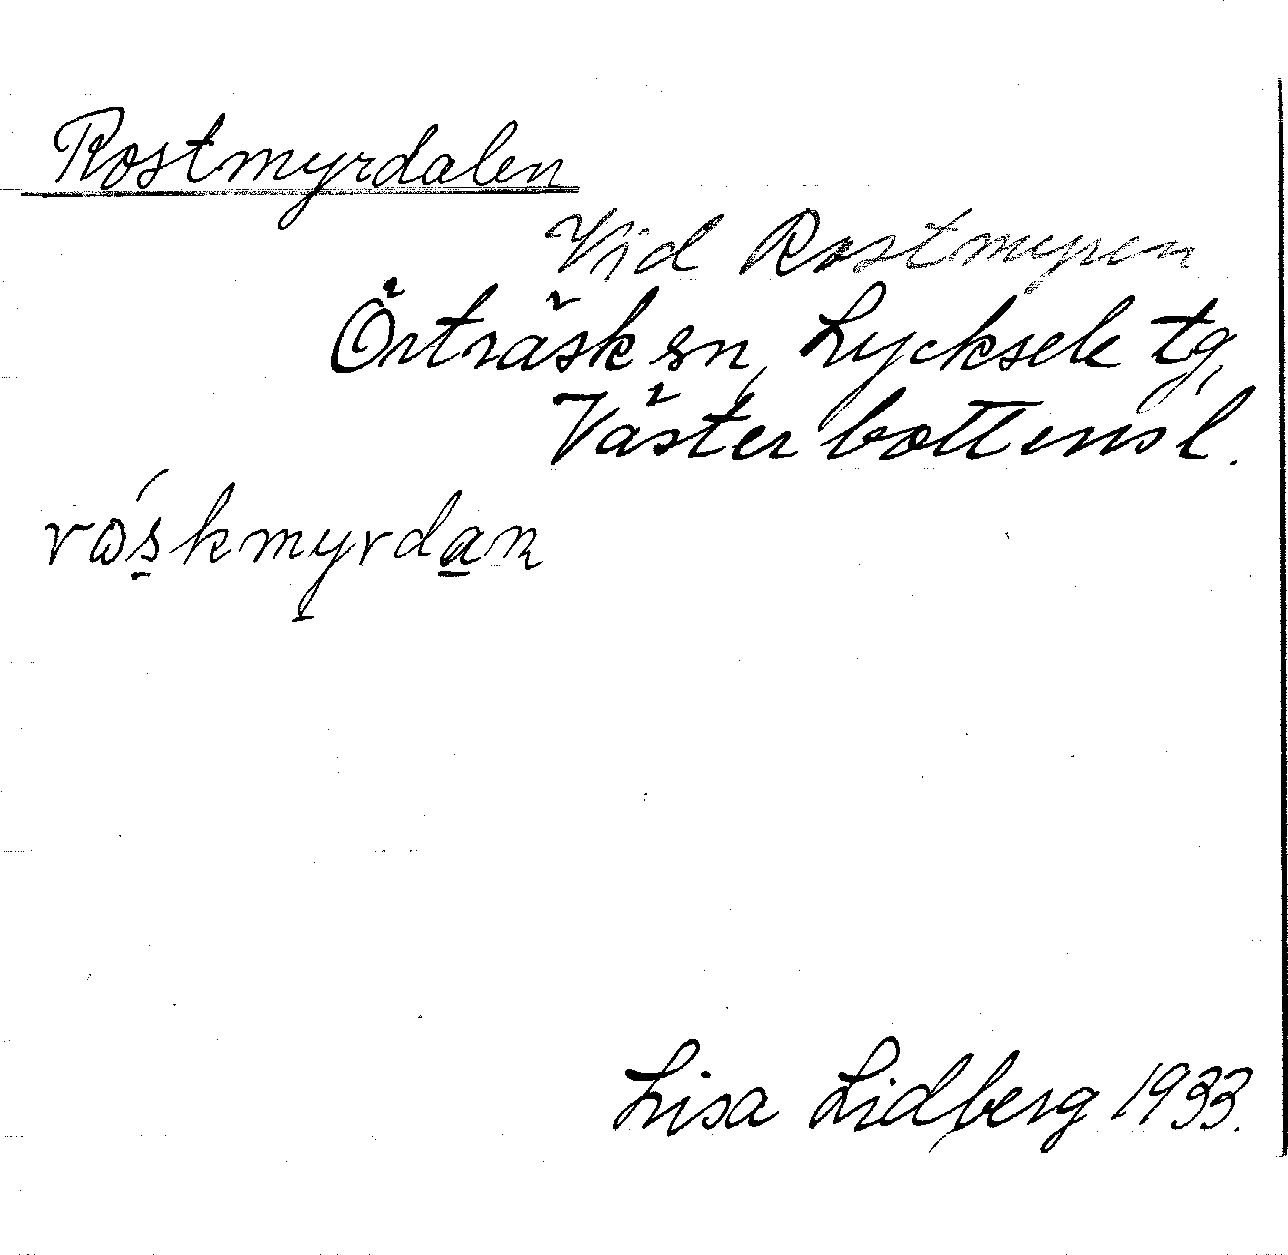 Rostmyrdalen
Vid Rostmyren
Örträsk sn, Lycksele tg,
Västerbottens l.
rɷ́s̱kmyrda̱n
Lisa Lidberg 1933.